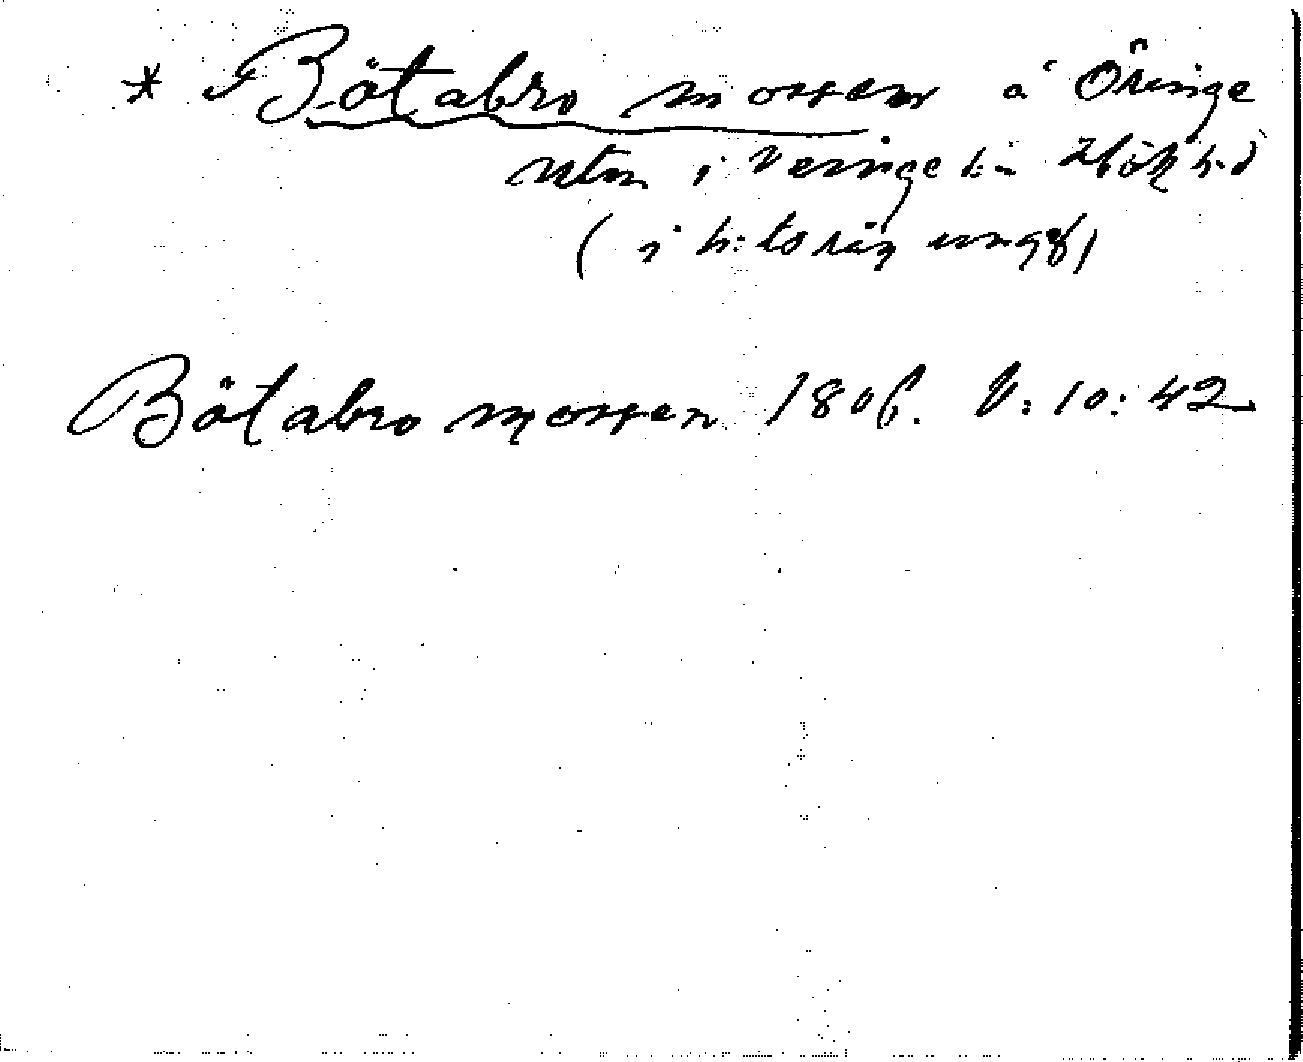 * Båtabro mossen å Öringe
utm i Veinge k:n Höks h:d
( i h:ts väg ungef)
Båtabro mossen 1806. V:10:42